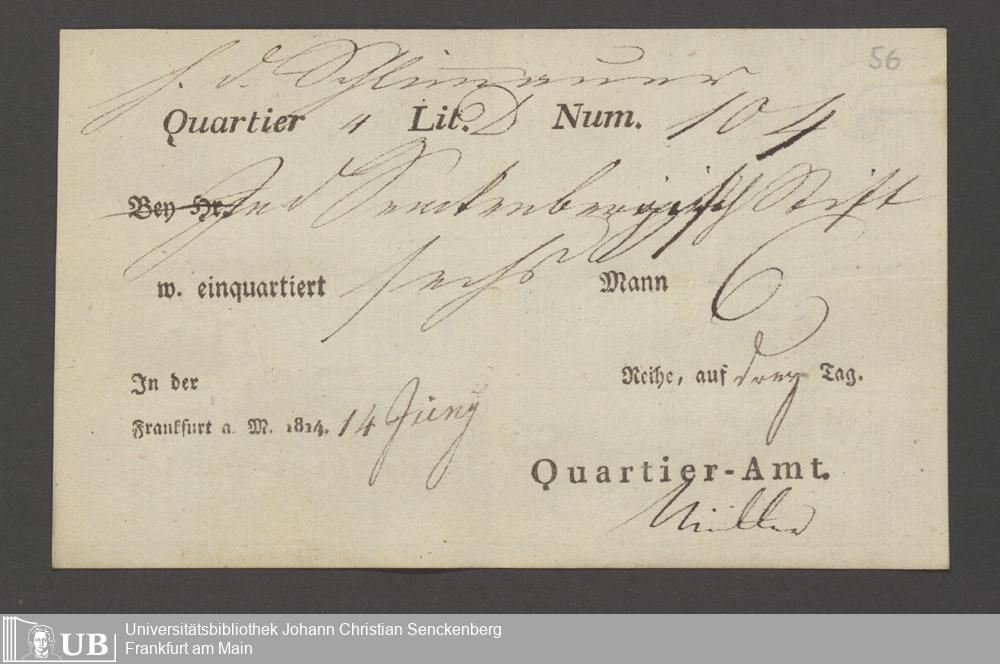 56
Quartier 4 Lit. D Num. 104
Bey Hr. Senckenbergisch Stift
w. einquartiert sechs Mann 6
In der Reihe, auf drey Tag.
Frankfurt a. M. 1814. 14 Juny
Quartier-Amt.
Müller
UB Universitätsbibliothek Johann Christian Senckenberg
Frankfurt am Main